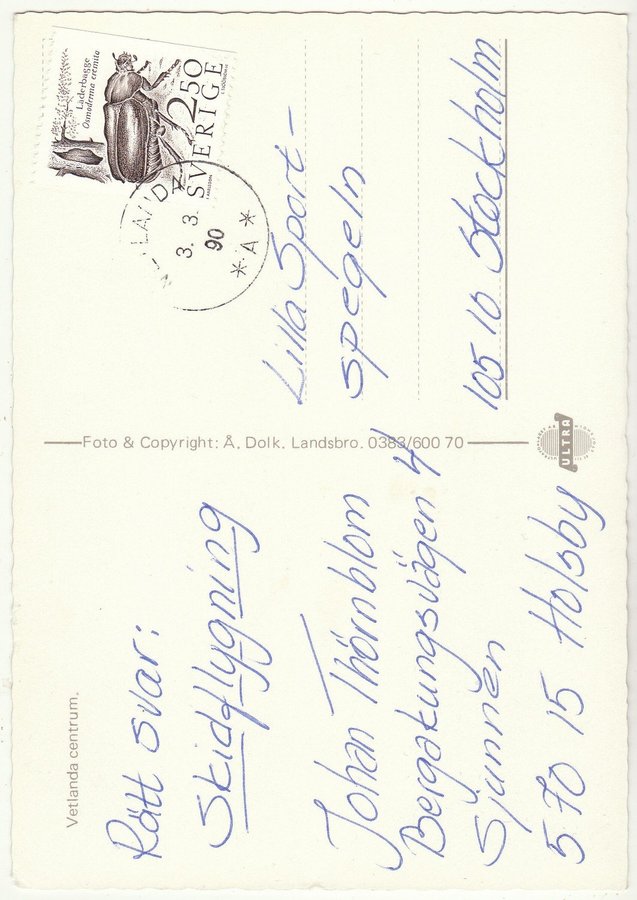 Vetlanda centrum.
Rätt svar:
Skidflygning
Johan Thörnblom
Bergakungsvägen 4
Sjunnen
570 15 Holsby
Foto & Copyright: Å. Dolk. Landsbro. 0383/600 70
ULTRA
Läderbagge
Osmoderma eremita
2.50
SVERIGE
3. 3.
90
* A *
Lilla Sport-
spegeln
105 10 Stockholm